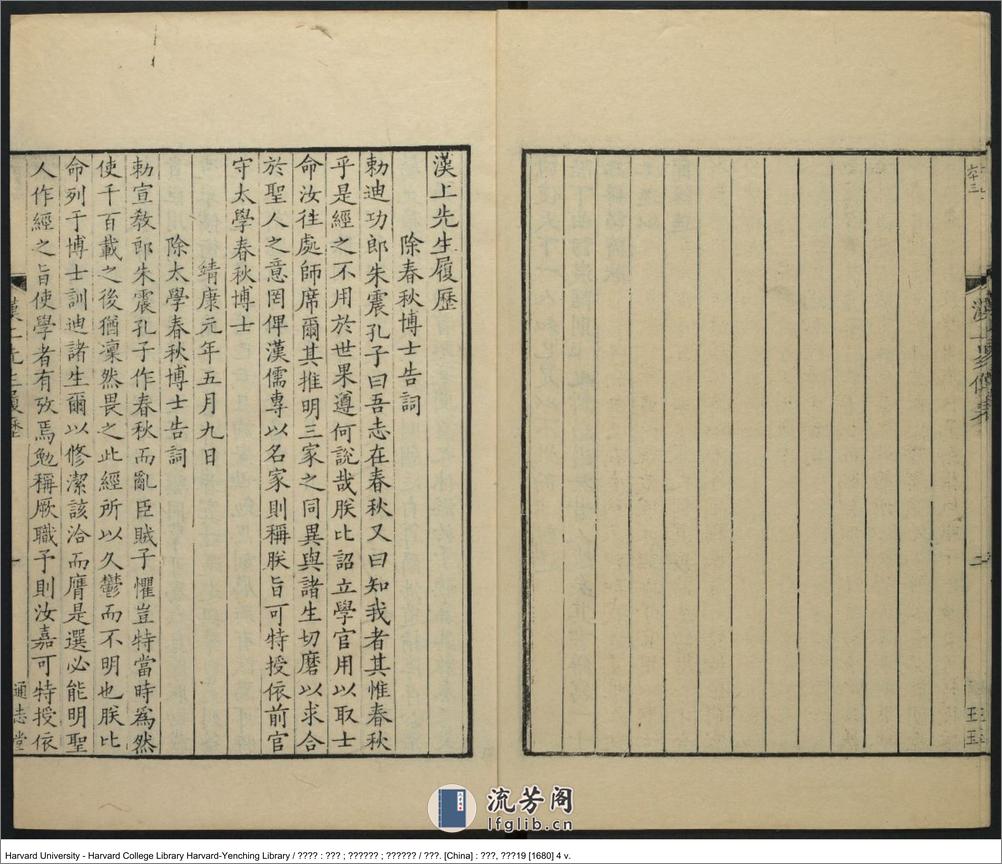 漢上先生履歷
除春秋博士告詞
勅迪功郎朱震孔子曰吾志在春秋又曰知我者其惟春秋
乎是經之不用於世果遵何說哉朕比詔立學官用以取士
命汝往處師席爾其推明三家之同異與諸生切磨以求合
於聖人之意罔俾漢儒專以名家則稱朕旨可特授依前官
守太學春秋博士
靖康元年五月九日
除太學春秋博士告詞
勅宣敎郎朱震孔子作春秋而亂臣賊子懼豈特當時爲然
使千百載之後猶凜然畏之此經所以久鬱而不明也朕比
命列于博士訓迪諸生爾以修潔該洽而膺是選必能明聖
人作經之旨使學者有攷焉勉稱厥職予則汝嘉可特授依
漢上先生履歷
一
通志堂
流芳阁
lfglib.cn
Harvard University - Harvard College Library Harvard-Yenching Library / ???? : ??? ; ?????? ; ?????? / ???. [China] : ???, ???19 [1680] 4 v.